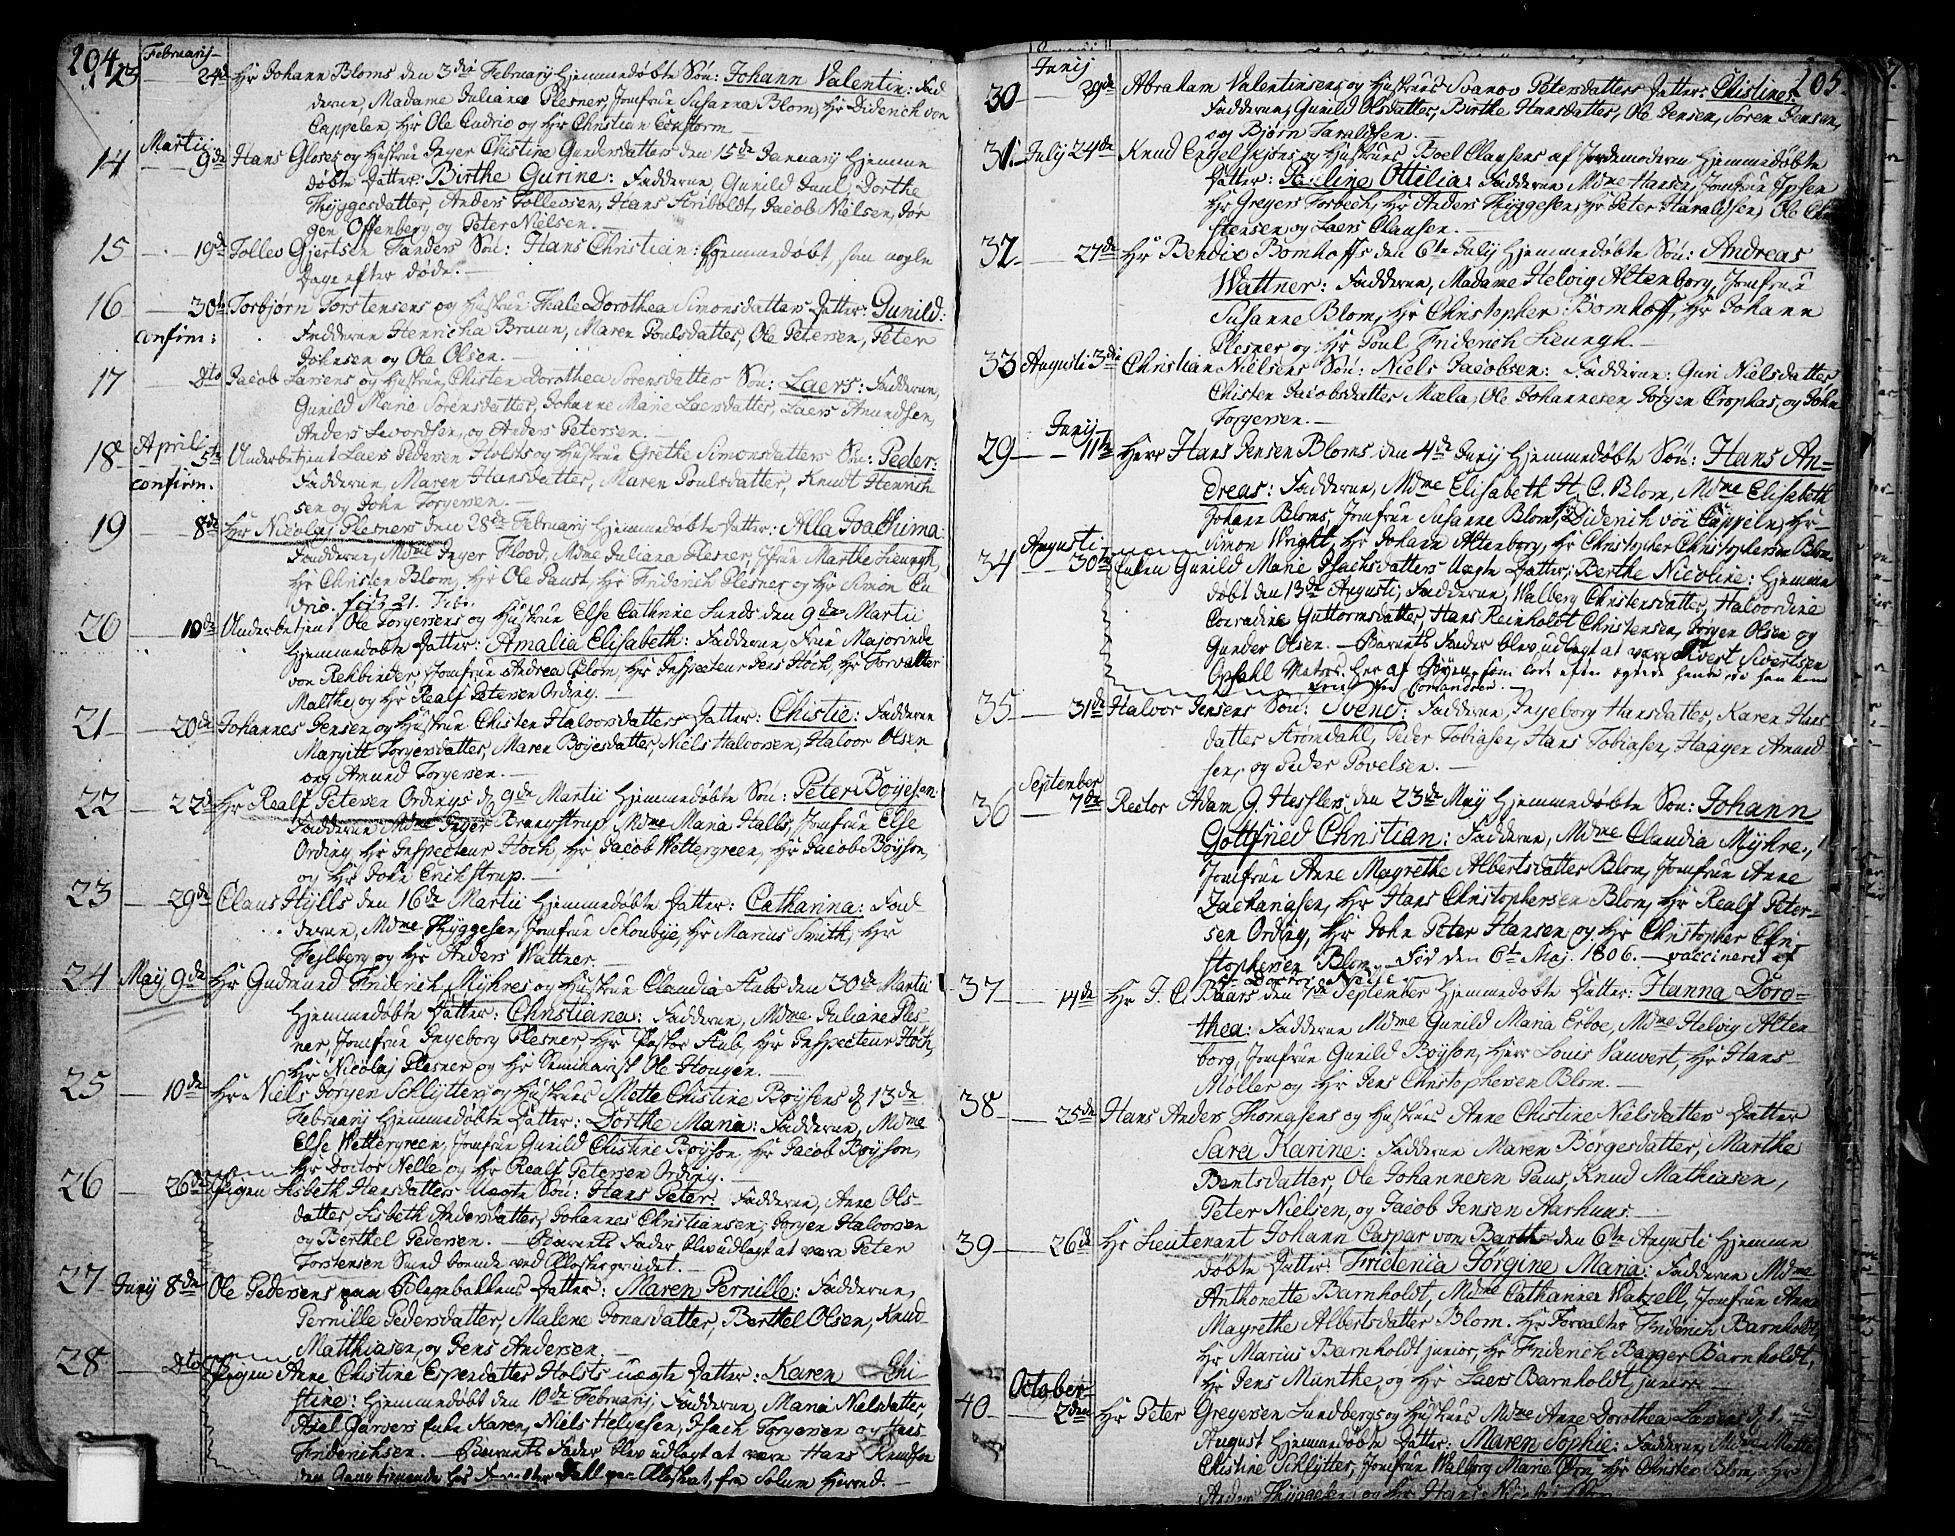 204.
Februarij
13 24de Hr Johann Bloms den 3die February hjemmedøbte Søn: Johann Valentin: Fad
derne, Madame Juliane Plesner, Jomfrue Susanna Blom, Hr Diderich von
Cappelen, Hr Ole Cudrio og Hr Christian
Martii
14 9de Hans Gloses og Hustrue Inger Christine Gundersdatters den 15de January hjemme
døbte Datter: Birthe Gurine: Fadderne, Gunild Juul, Dorthe
Thyggesdatter, Anders Tollevsen, Hans Ariboldt, Jacob Nielsen, Jør
gen Offenberg og Peter Nielsen.
15 19de Tollev Gjertsen Tanders Søn: Hans Christian: hjemmedøbt, som nogle
Dage efter døde.
16 30te Torbjørn Torstensens og Hustrue Thale Dorothea Simonsdatters Datter: Gunild:
confirm: Fadderne Henricha Bruun, Maren Poulsdatter, Ole Petersen, Peter
Johnsen og Ole Olsen.
17 dto Jacob Larsens og Hustrue Chisten Dorothea Sørensdatters Søn: Laers: Fadderne,
Gunild Marie Sørensdatter, Johanne Marie Laersdatter, Laers Amundsen,
Anders Sivordsen, og Anders Petersen.
April
18 5te Underbetjent Laers Pedersen Holsts og Hustrue Grethe Simonsdatters Søn: Peder:
confirm: Fadderne, Maren Hansdatter, Maren Poulsdatter, Knudt Henrich
sen og John Torgersen.
19 8de Hr Nicolaj Plesners den 28de February hjemmedøbte Datter: Alla Joachima:
Fadderne, Mdme Inger Flood, Mdme Juliana Plesner, Jfrue Marthe Lieungh,
Hr Christen Blom, Hr Ole Paust, Hr Friderich Plesner og Hr Simon Cu
drio. 21. Febr.
20 10de Underbetjent Ole Torgersens og Hustrue Else Cathrine Lunds den 9de Martii
hjemmedøbte Datter: Amalia Elisabeth: Fadderne, Frue Majorinde
von Rehbinder, Jomfrue Andrea Blom, Hr Inspecteur Jens Höch, Hr Forvalter
Malthe, og Hr Realf Petersen Ording.
21 20de Johannes Jensen og Hustrue Chisten Halvorsdatters Datter: Chistie: Fadderne
Margitt Torgersdatter, Maren Boyesdatter, Niels Halvorsen, Halvor Olsen
og Amund Torgersen.
22 22de Hr Realf Petersen Ordings d. 9de Martii hjemmedøbte Søn: Peter Boyesen:
Fadderne Mdme Inger Brennstrup, Mdme Maria Halls, Jomfrue Else
Ording, Hr Inspecteur Höch, Hr Jacob Wettergreen, Hr Jacob Boyson,
og Hr John Erichstrup.
23 29de Claus Hylls den 16de Martii hjemmedøbte Datter: Catharina: Fad
derne, Mdme Thyggesen, Jomfrue Schoubye, Hr Marius Smith, Hr
Fejlberg og Hr Anders Wattner.
24 May 9de Hr Gudmund Friderich Myhres og Hustrue Claudia Aabs den 30de Martii
hjemmedøbte Datter: Christiane: Fadderne, Mdme Juliane Ples
ner, Jomfrue Ingeborg Plesner, Hr Pastor Aab, Hr Inspecteur Höch,
Hr Nicolaj Plesner og Hr Seminarist Ole Hougen.
25 10de Hr Niels Jørgen Schlytters og Hustrues Mette Chistine Boysens d. 13de
February hjemmedøbte Datter: Dorthe Maria: Fadderne, Mdme
Else Wettergreen, Jomfrue Gunild Chistine Boyson, Hr Jacob Boyson,
Hr Doctor Nelle og Hr Realf Petersen Ording.
26 26de Pigen Lisbeth Hansdatters Uægte Søn: Hans Peter: Fadderne, Anne Ols
datter, Lisbeth Andersdatter, Johannes Christiansen, Jørgen Halvorsen
og Berthel Pedersen. Barnets Fader blev udlagt at være Peter
Torstensen Sund boende ved Klostergrundet.
27 Junij 8de Ole Pedersens paa Blegeballens Datter: Maren Pernille: Fadderne,
Pernille Pedersdatter, Malene Jonasdatter, Berthel Olsen, Knud
Matthiasen, og Jens Andersen.
28 dto Pigen Anne Chistine Espersdatter Holsts uægte Datter: Karen Chi
stine: hjemmedøbt den 10de February, Fadderne, Maria Nielsdatter,
Axel Garvers Enke Karen, Niels Helgesen, Isach Torgersen og Hans
Friderichsen. Barnets Fader blev udlagt at være Hans Knudsen
fra Solum Herred.
205.
Junij
30 29de Abraham Valentinsens og Hustrues Svanov Petersdatters Datter: Chistine:
Fadderne, Gunild Olsdatter, Birthe Hansdatter, Ole Jensen, Søren Jensen,
og Bjørn Haraldsen.
31 July 24de Knud Engelskjøns og Hustrues Boel Clausens af Jordemoderen hjemmedøbte
Datter: Pauline Ottilia: Fadderne Mdme Hansen, Jomfrue Ipsen
Hr Greyers Forbech, Hr Anders Thyggesen, Hr Peter Haraldsen, Ole Chi
stensen og Laers Clausen.
32 27de Hr Bendix Bomhoffs den 6te July hjemmedøbte Søn: Andreas
Wattner: Fadderne, Madame Helvig Altenborg, Jomfrue
Susanne Blom, Hr Christopher Bomhoff, Hr Johann
Plesner og Hr Poul Friderich Lieungh.
33 Augusti 3die Christian Nielsens Søn: Niels Jacobsen: Fadderne: Guri Nielsdatter,
Chisten Jacobsdatter Mæla, Ole Johannesen, Jørgen Crophas, og John
Torgersen.
Junij
29 11te Herr Hans Jensen Bloms den 4de Junij hjemmedøbte Søn: Hans An=
dreas: Fadderne, Mdme Elisabeth H. C. Blom, Mdme Elisabeth
Johann Bloms, Jomfrue Susanne Blom, Hr Diderich von Cappelen, Hr
Simon Wright, Hr Johann Altenborg, Hr Christopher Christophersen Blom.
Augusti
34 30te Enken Gunild Marie Isachsdatters Uægte Datter: Berthe Nicoline: hjemme
døbt den 13de Augusti, Fadderne, Walberg Christensdatter, Halvordine
Conradine Guttormsdatter, Hans Reinholdt Christensen, Jørgen Olsen og
Gunder Olsen. Barnets Fader blev udlagt at være Sivert Sivertsen
Opdahl Matros her af Byen, som lod efter sigende hente, da han kom
35 31de Halvor Jensens Søn: Svend: Fadderne, Ingeborg Hansdatter, Karen Hans
datter Strømdahl, Peder Tobiasen, Hans Tobiasen, Haagen Amund
sen, og Peder Povelsen.
September
36 7de Rector Adam G. Hesslers den 23de May hjemmedøbte Søn: Johann
Gottfried Christian: Fadderne, Mdme Claudia Myhre,
Jomfrue Anne Magrethe Albertsdatter Blom, Jomfrue Anne
Zachariasen, Hr Hans Christophersen Blom, Hr Realf Peter=
sen Ording, Hr John Peter Hansen og Hr Christopher Chri
stophersen Blom. Fød den 6t Maj. 1806. vaccineret af
37 14de Hr J. C. Baars den 7de September hjemmedøbte Datter: Hanna Doro=
thea: Fadderne Mdme Gunild Maria Erboe, Mdme Helvig Alten
borg, Jomfrue Gunild Boyson, Herr Louis Vauvert, Hr Hans
Møller og Hr Jens Christophersen Blom.
38 25de Hans Anders Thomasens og Hustrues Anne Chistine Nielsdatters Datter
Sara Karine: Fadderne Maren Børgesdatter, Marthe
Bentsdatter, Ole Johannesen Paus, Knud Mathiasen,
Peter Nielsen, og Jacob Jensen Aarhuus.
39 26de Hr Lieutenant Johann Caspar von Barth den 6te Augusti hjemme
døbte Datter: Friderica Jørgine Maria: Fadderne Mdme
Anthonette Barnholdt, Mdme Catharine Watzell, Jomfrue Anna
Magrethe Albertsdatter Blom. Hr Forvalter Friderich Barnholdt,
Hr Marius Barnholdt junior, Hr Friderich Bagger Barnholdt,
Hr Jens Munthe, og Hr Laers Barnholdt, junior.
October
40 2den Hr Peter Greyersen Lundbergs og Hustrues Mdme Anne Dorothea Larsens d. 1.
August hjemmedøbte Datter: Maren Sophie: Fadderne, Mdme Mette
Chistine Schlytter, Jomfrue Walborg Marie Hr Christen Blom, Hr
Anders Thyggesen og Hr Hans